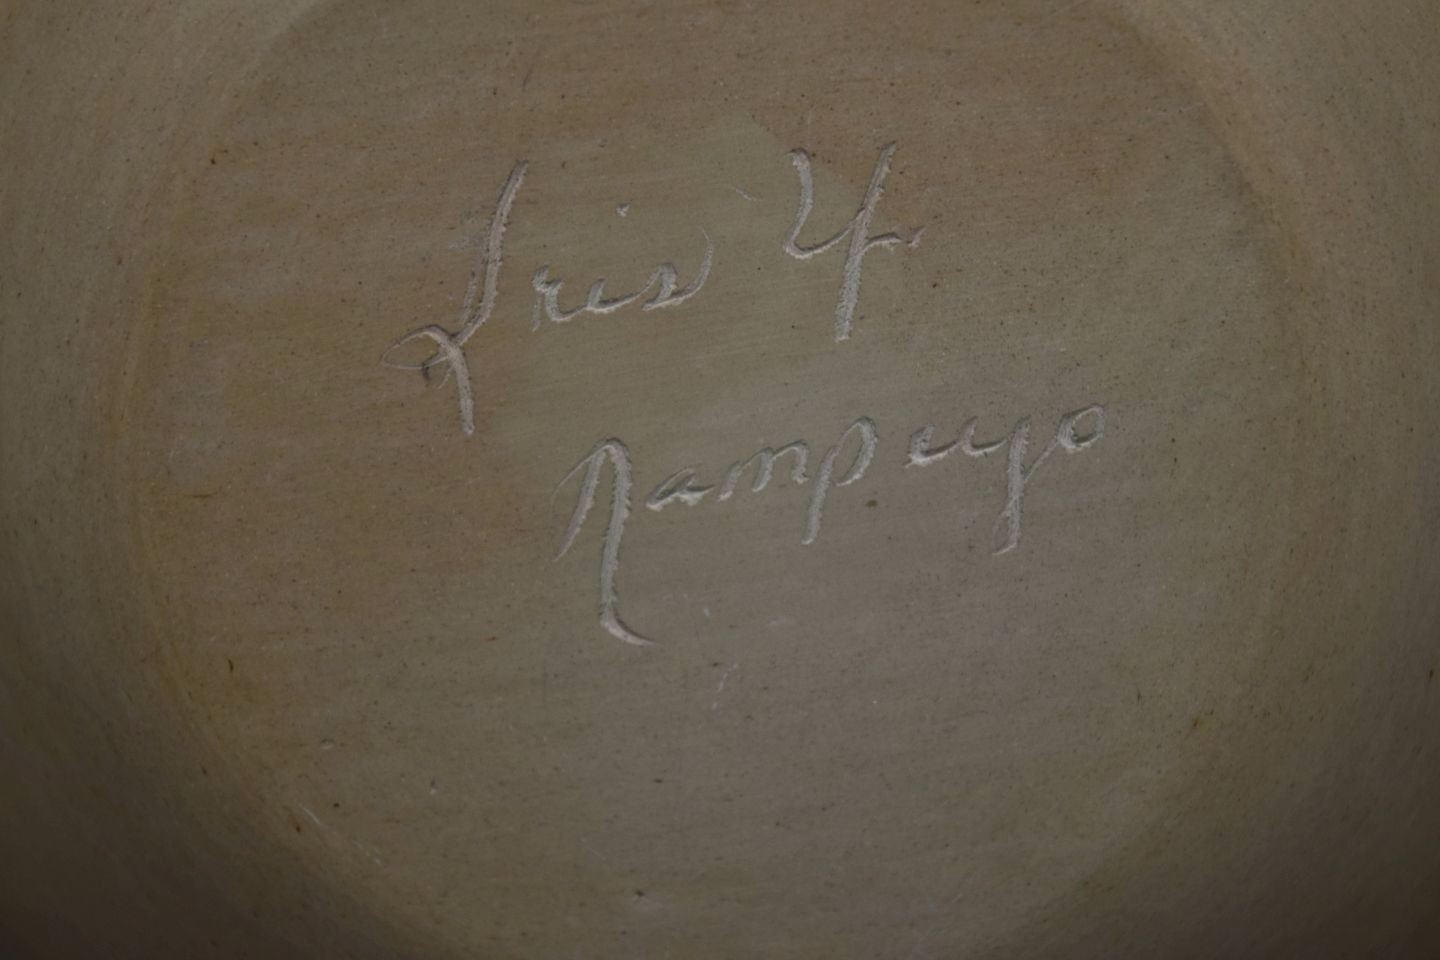 Iris Y
Nampeyo